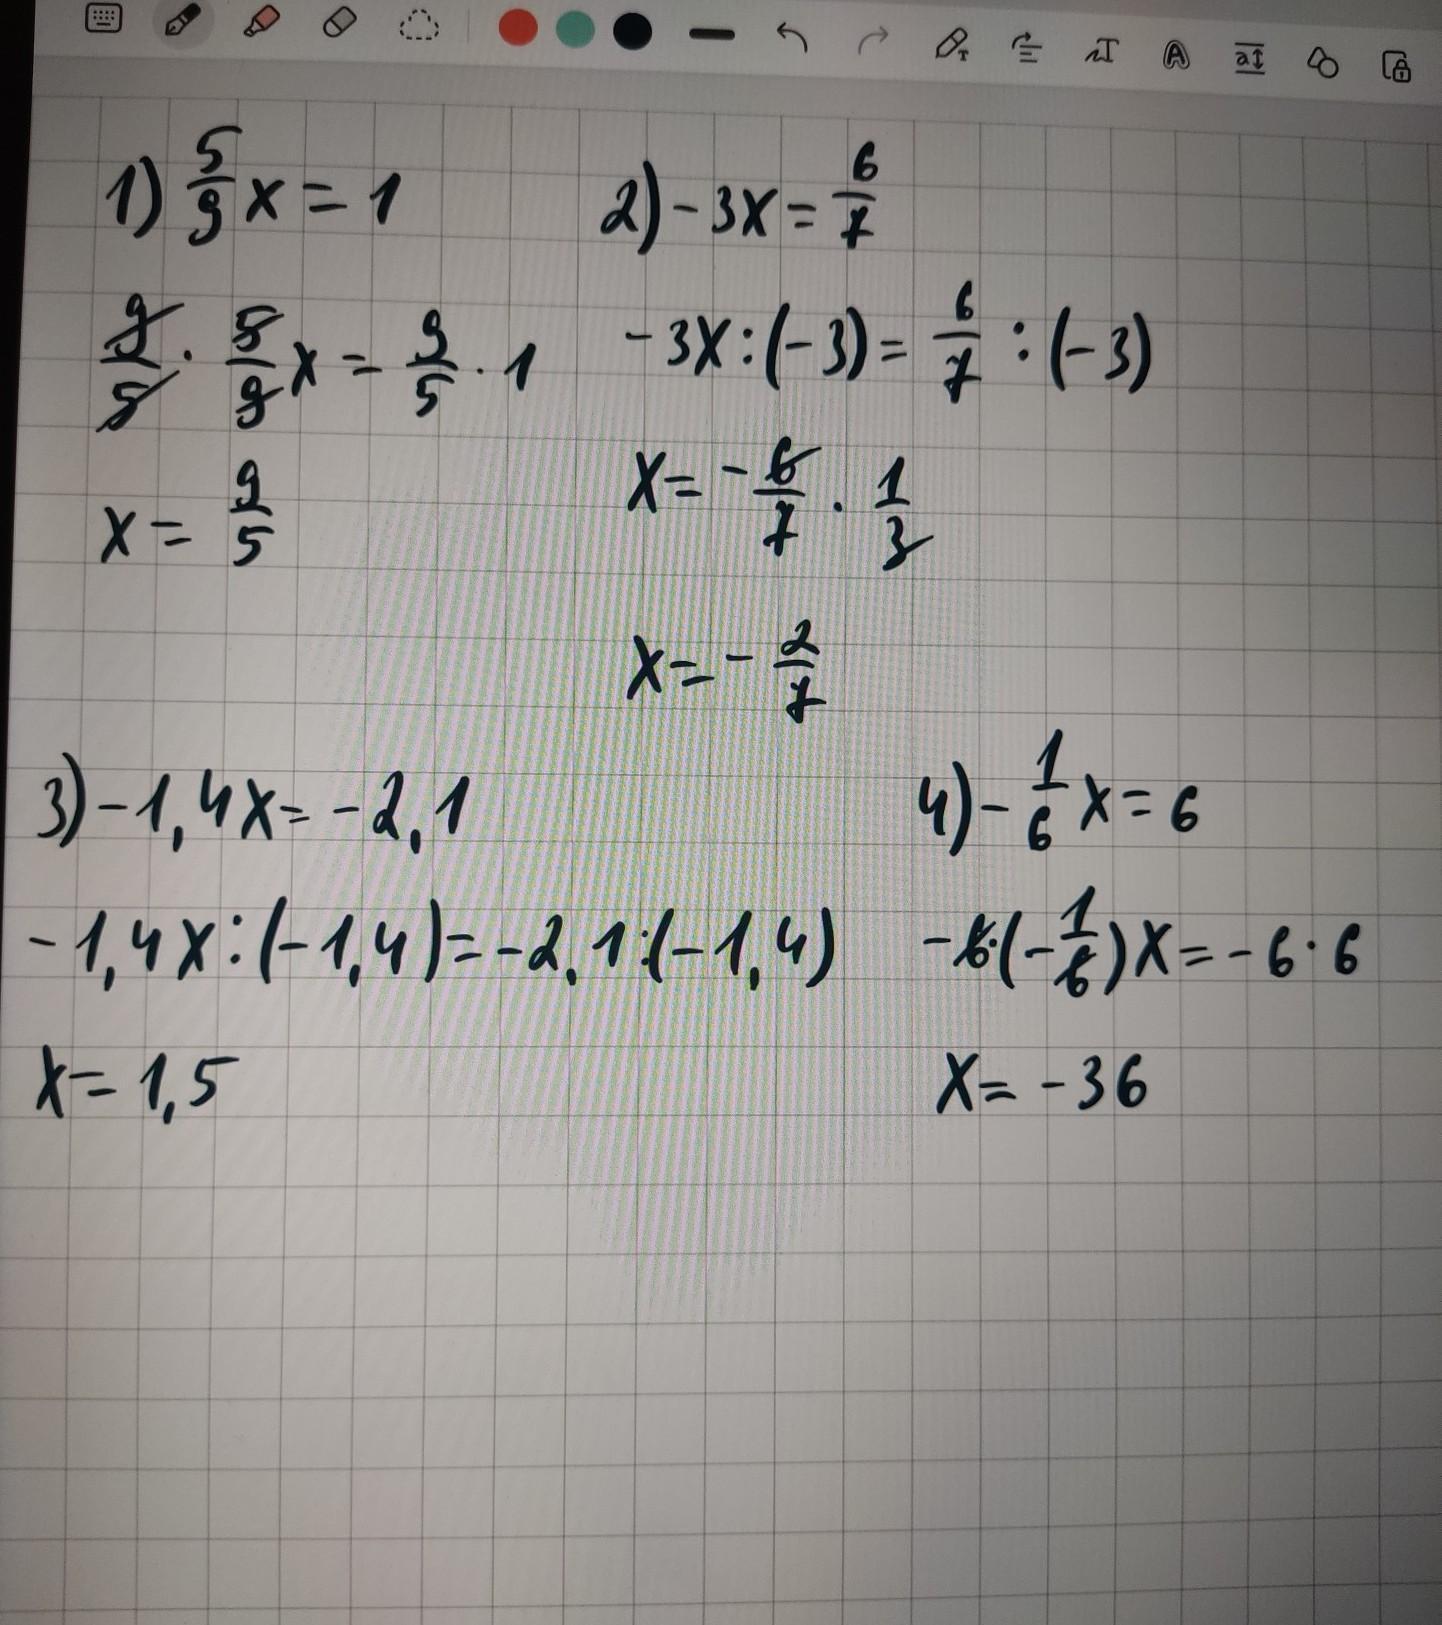 1) 5/9 x = 1
9/5 · 5/9 x = 9/5 · 1
x = 9/5
2) -3x = 6/7
-3x : (-3) = 6/7 : (-3)
x = - 6/7 · 1/3
x = - 2/7
3) -1,4x = -2,1
-1,4x : (-1,4) = -2,1 : (-1,4)
x = 1,5
4) - 1/6 x = 6
-6 · (- 1/6) x = -6 · 6
x = -36